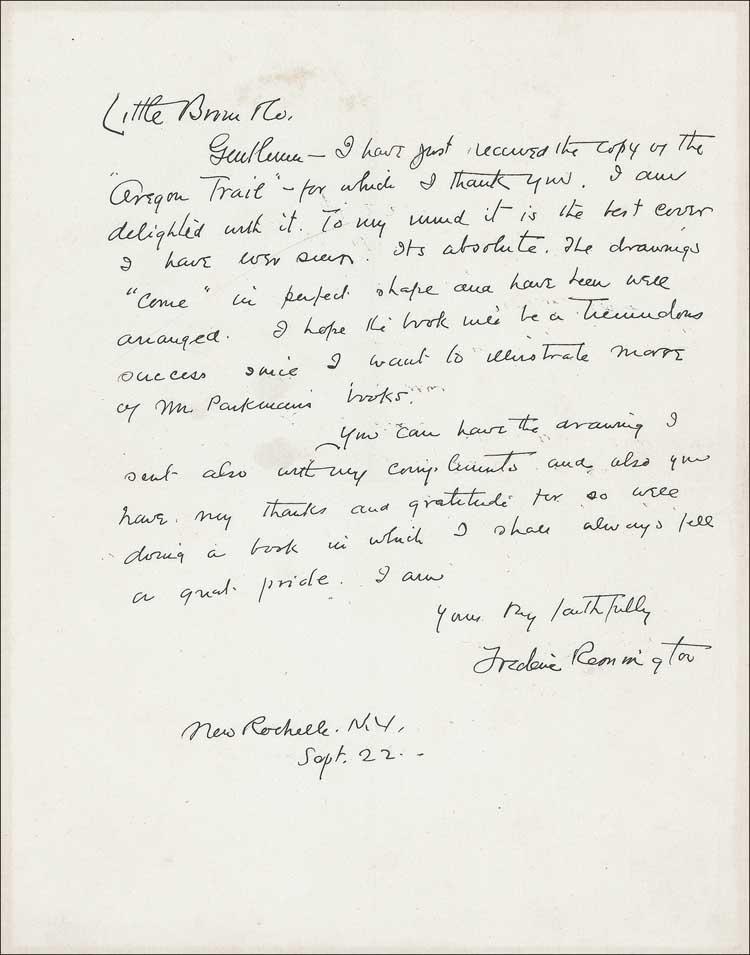 Little Brown & Co.
Gentlemen – I have just received the copy of the
"Oregon Trail" – for which I thank you. I am
delighted with it. To my mind it is the best cover
I have ever seen. Its absolute. The drawings
"come" in perfect shape and have been well
arranged. I hope the book will be a tremendous
success since I want to illustrate more
of Mr. Parkman's books.
You can have the drawing I
sent also with my compliments and also you
have my thanks and gratitude for so well
doing a book in which I shall always feel
a great pride. I am
Yours very faithfully
Frederic Remington
New Rochelle. N.Y.
Sept. 22 –